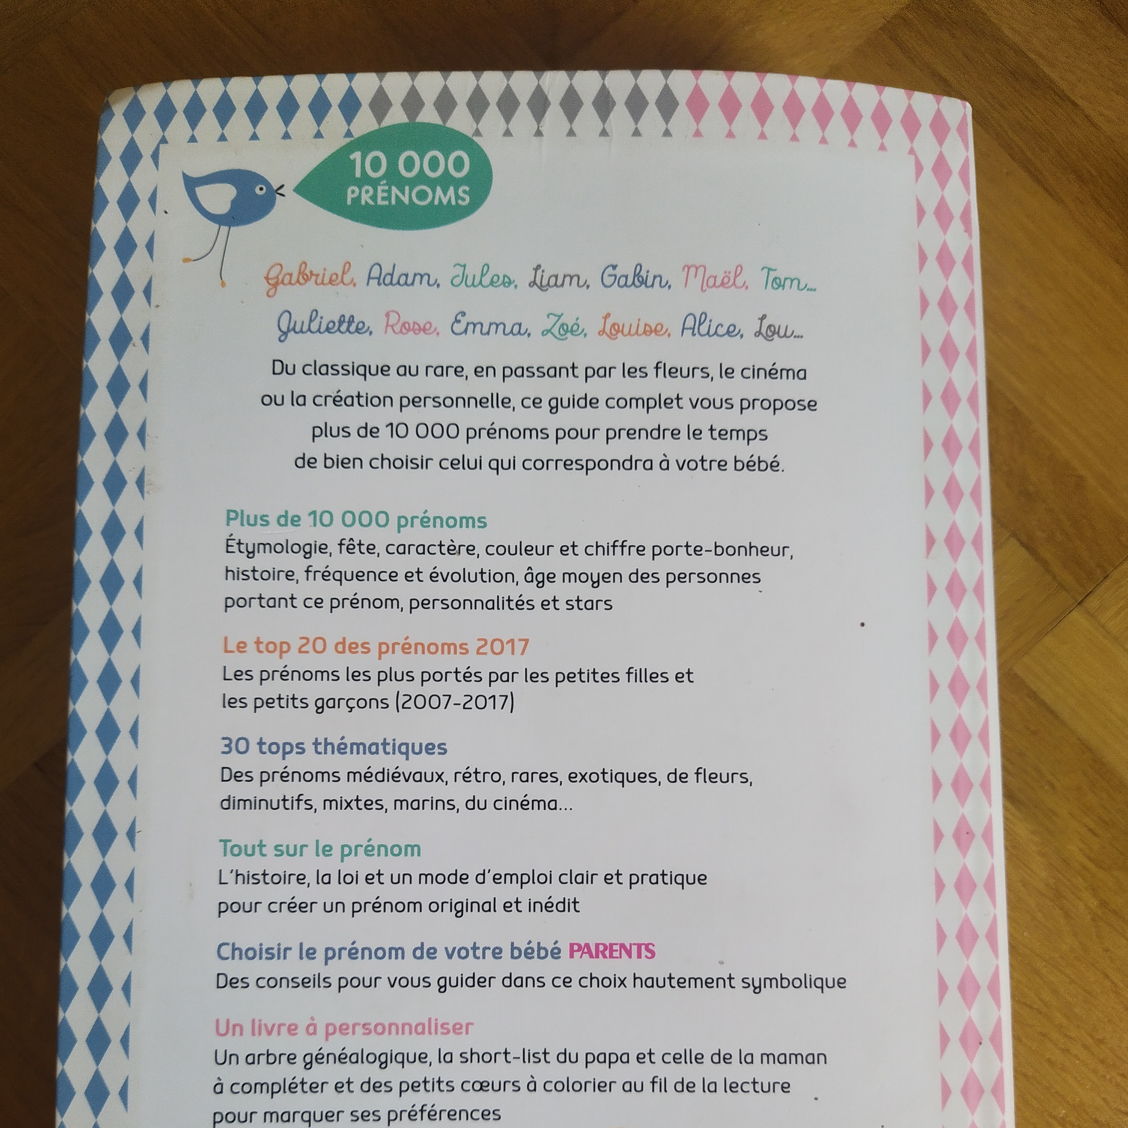 10 000
PRÉNOMS
Gabriel, Adam, Jules, Liam, Gabin, Maël, Tom...
Juliette, Rose, Emma, Zoé, Louise, Alice, Lou...
Du classique au rare, en passant par les fleurs, le cinéma
ou la création personnelle, ce guide complet vous propose
plus de 10 000 prénoms pour prendre le temps
de bien choisir celui qui correspondra à votre bébé.
Plus de 10 000 prénoms
Étymologie, fête, caractère, couleur et chiffre porte-bonheur,
histoire, fréquence et évolution, âge moyen des personnes
portant ce prénom, personnalités et stars
Le top 20 des prénoms 2017
Les prénoms les plus portés par les petites filles et
les petits garçons (2007-2017)
30 tops thématiques
Des prénoms médiévaux, rétro, rares, exotiques, de fleurs,
diminutifs, mixtes, marins, du cinéma...
Tout sur le prénom
L'histoire, la loi et un mode d'emploi clair et pratique
pour créer un prénom original et inédit
Choisir le prénom de votre bébé PARENTS
Des conseils pour vous guider dans ce choix hautement symbolique
Un livre à personnaliser
Un arbre généalogique, la short-list du papa et celle de la maman
à compléter et des petits cœurs à colorier au fil de la lecture
pour marquer ses préférences